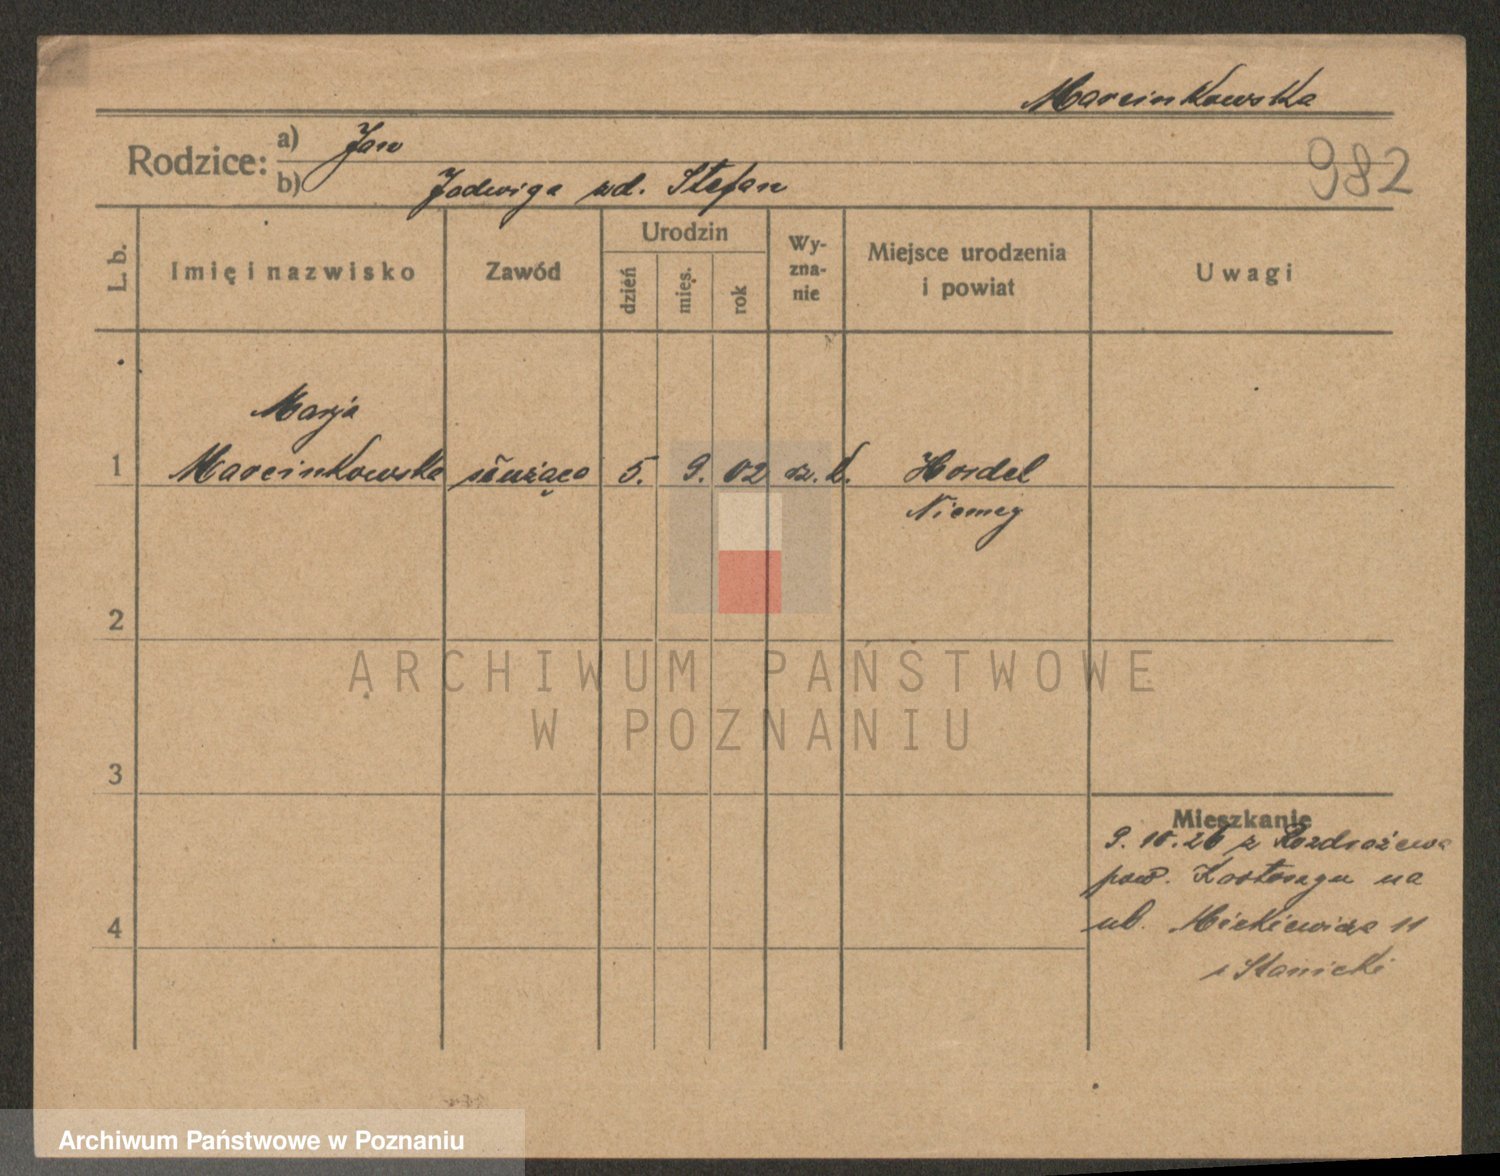 Marcinkowska
982
Rodzice: a) Jan
b) Jadwiga zd. Stefan
L. b.
Imię i nazwisko
Zawód
Urodzin
dzień
mieś.
rok
Wy-
zna-
nie
Miejsce urodzenia
i powiat
Uwagi
Marja
1 Marcinkowska służąca 5. 9. 02 rz. k. Hordel
Niemcy
2
ARCHIWUM PAŃSTWOWE
W POZNANIU
3
Mieszkanie
9. 10. 26 z Rozdrażewa
pow. na
4
ul. Mickiewicza 11
Stanicki
Archiwum Państwowe w Poznaniu